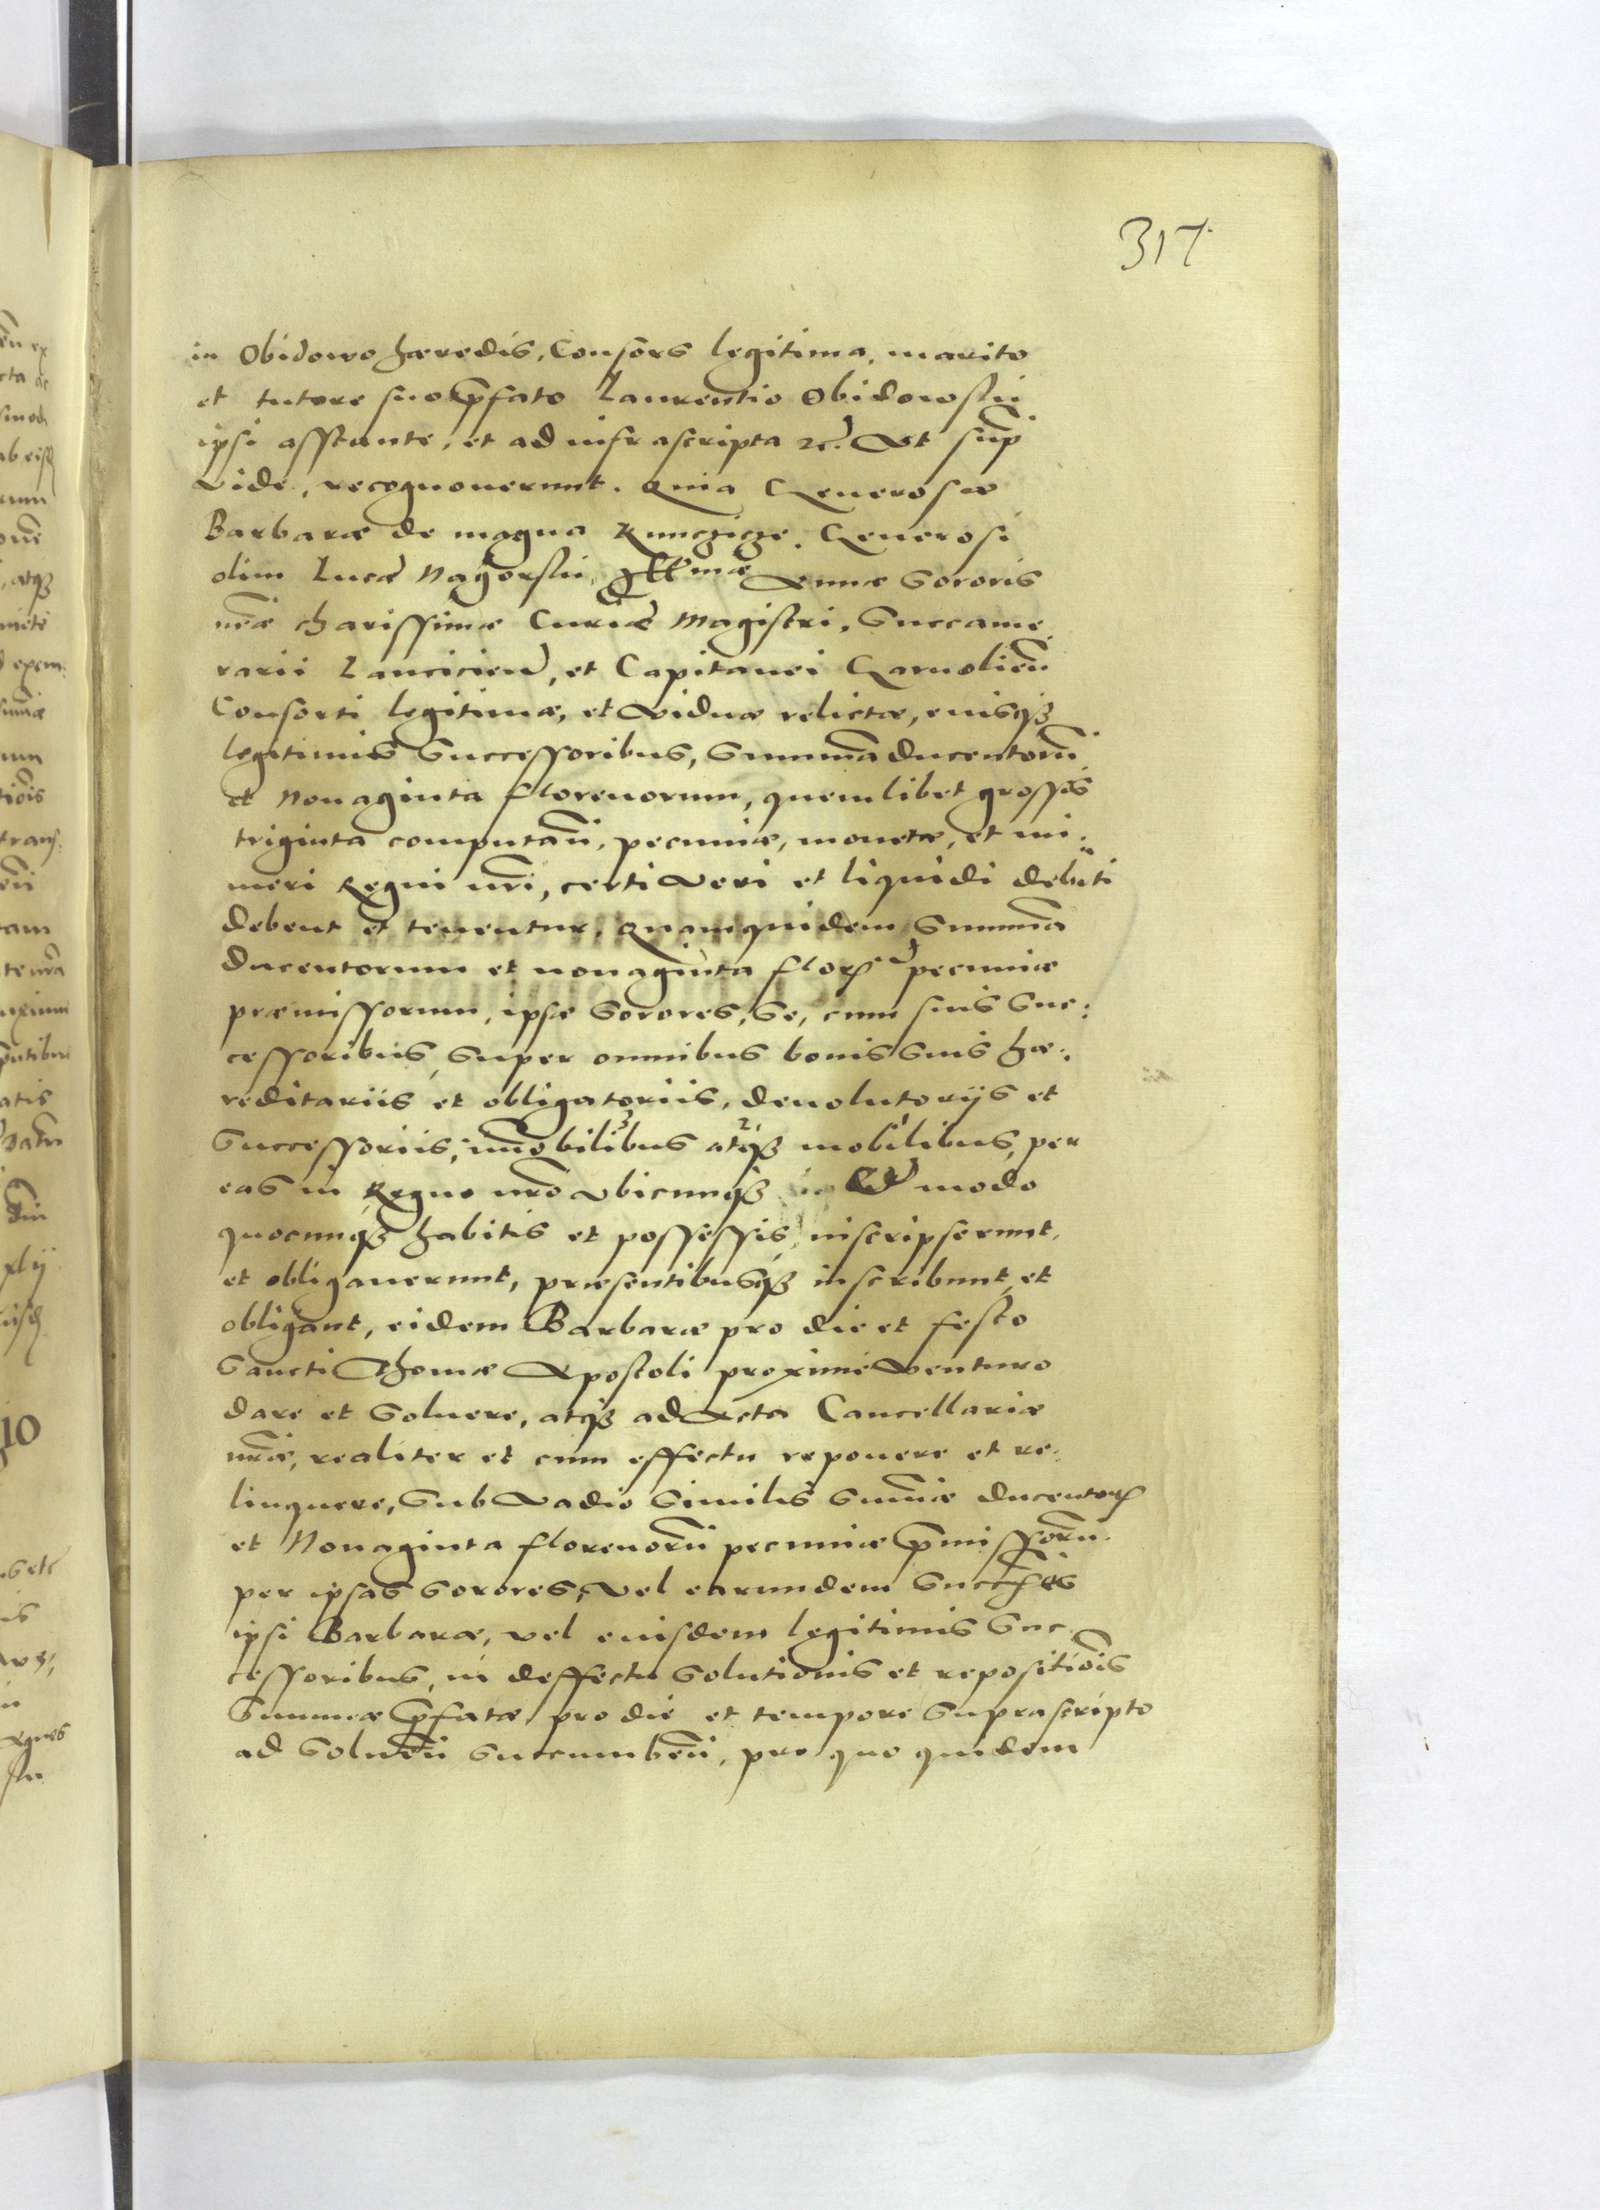 317
in Obidowo hæredis, Consors legitima, marito
et tutore suo p̄fato Laurentio Obidowskij
ipsi asstante, et ad infrascripta &c. Ut sup̄
vide, recognoverunt. Quia Generosæ
Barbaræ de magna Runczicze, Generosi
olim Lucæ Nagorskij, Annæ Sororis
nr̄æ charissimæ Curiæ Magistri, Succame
rarii Lancicien, et Capitanei Garvolien̄
Consorti legitimæ, et Viduæ relictæ, eiusq3
legitimis Successoribus, Summā ducentorū
et Nonaginta florenorum, quemlibet grossis
triginta computan̄, pecuniæ, monetæ, et nu:
meri Regni nr̄i, certi veri et liquidi debiti
debent et tenentur. Quamquidem Summā
ducentorum et nonaginta flor pecuniæ
præmissorum, ipsæ Sorores, se, cum suis Suc:
cessoribus, super omnibus bonis suis hæ:
reditariis et obligatoriis, devolutorijs et
Successoriis, im̄obilibus atq3 mobilibus, per
eas in Regno nr̄o ubicunq3 modo
quocunq3 habitis et possessis, inscripserunt,
et obligaverunt, præsentibusq3 inscribunt et
obligant, eidem Barbaræ pro die et festo
Sancti Thomæ Apostoli proximè venturo
dare et solvere, atq3 ad Acta Cancellariæ
nr̄æ, realiter et cum effectu reponere et re:
linquere, sub vadio similis sum̄æ ducentor
et Nonaginta florenorū pecuniæ p̄missorū
per ipsas Sorores, vel earundem Succes
ipsi Barbaræ, vel eiusdem legitimis Suc
cessoribus, in deffectu solutionis et repositiōis
Summæ p̄fatæ pro die et tempore suprascripto
ad solven̄ succumben̄, pro quo quidem